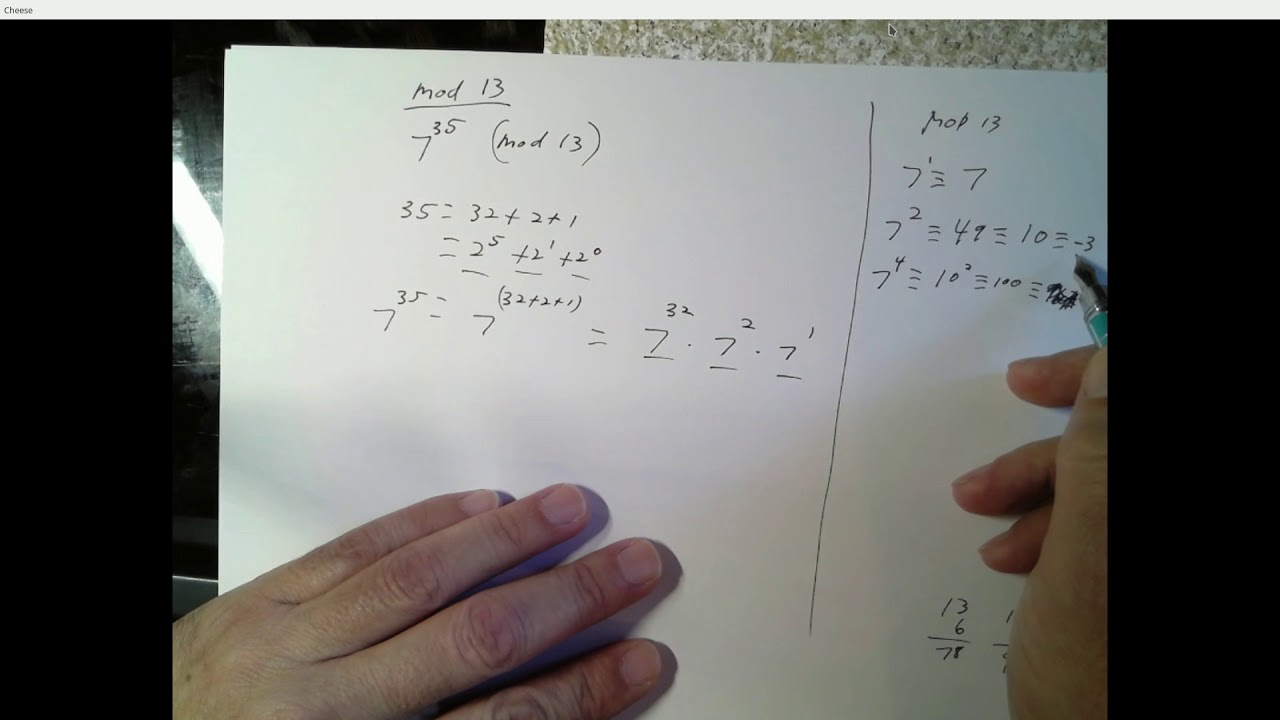 Cheese
mod 13
7^35 (mod 13)
35 = 32 + 2 + 1
= 2^5 + 2^1 + 2^0
7^35 = 7^(32+2+1) = 7^32 · 7^2 · 7^1
mod 13
7^1 ≡ 7
7^2 ≡ 49 ≡ 10 ≡ -3
7^4 ≡ 10^2 ≡ 100 ≡
13
6
78